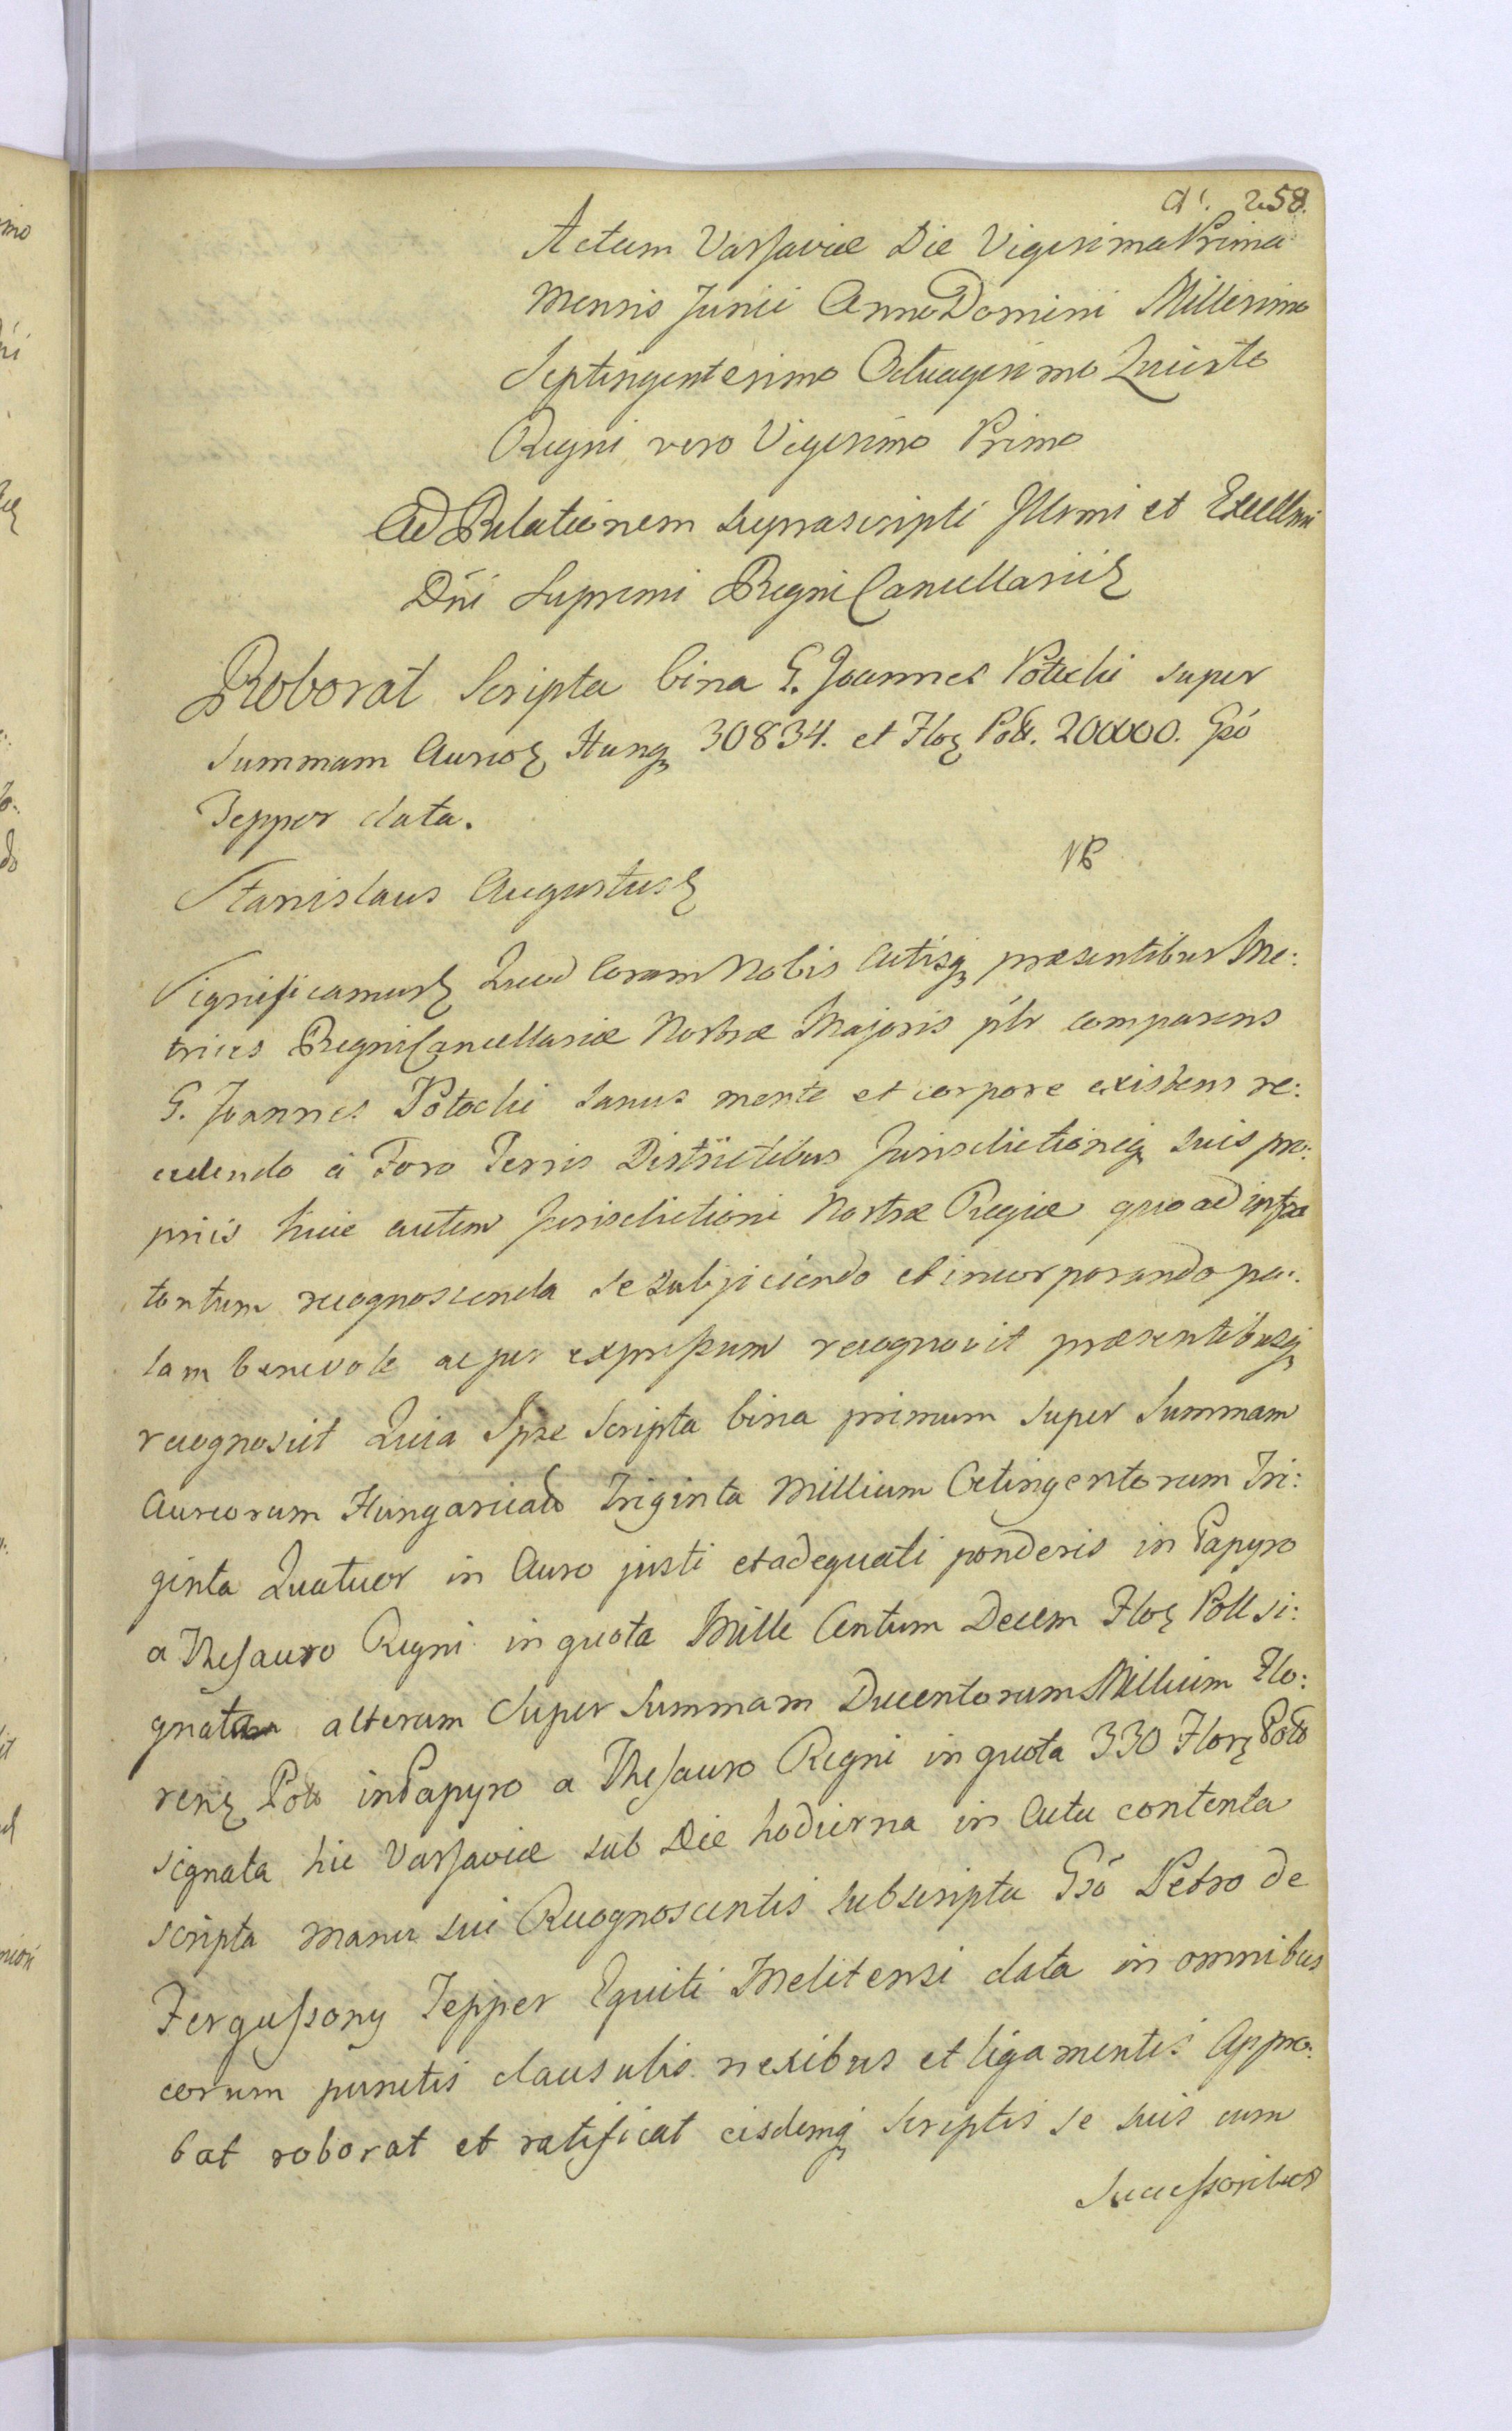 258.
Actum Varsaviae Die Vigesima Prima
Mensis Junii Anno Domini Millesimo
Septingentesimo Octuagesimo Quinto
Regni vero Vigesimo Primo
Ad Relationem suprascripti Illrmi et Excellmi
Dñi Supremi Regni Cancellarii
Roborat Scripta bina G. Joannes Potocki super
Summam Aureoꝝ Hung 30834. et Floꝝ Poll. 200000. Gsó
Tepper data.
Stanislaus Augustus
Significamus Quod Coram Nobis Actisqꝫ praesentibus Me:
trices Regni Cancellariae Nostrae Majoris plr comparens
G. Joannes Potocki sanus mente et corpore existens re:
cedendo à Foro Terris Districtibus Jurisdictioneqꝫ suis pro:
priis huic autem Jurisdictioni Nostrae Regiae quoad infra
tantum recognoscenda se subjiciendo et incorporando pa:
lam benevole ac per expressum recognovit praesentibusqꝫ
recognoscit Quia Ipse Scripta bina primum super Summam
Aureorum Hungarical Triginta Millium Octingentorum Tri:
ginta Quatuor in Auro justi et adequati ponderis in Papyro
a Thesauro Regni in quota Mille Centum Decem Floꝝ Poll si:
gnata alterum super Summam Ducentorum Millium Flo:
renꝝ Poll in Papyro a Thesauro Regni in quota 330 Florꝝ Poll
signata hic Varsaviae sub Die hodierna in Actu contenta
scripta manu sui Recognoscentis subscripta Gsó Petro de
Fergussony Tepper Equiti Melitensi data in omnibus
eorum punctis clausulis nexibus et ligamentis Appro:
bat roborat et ratificat eisdemqꝫ Scriptis se suis cum
Successoribus